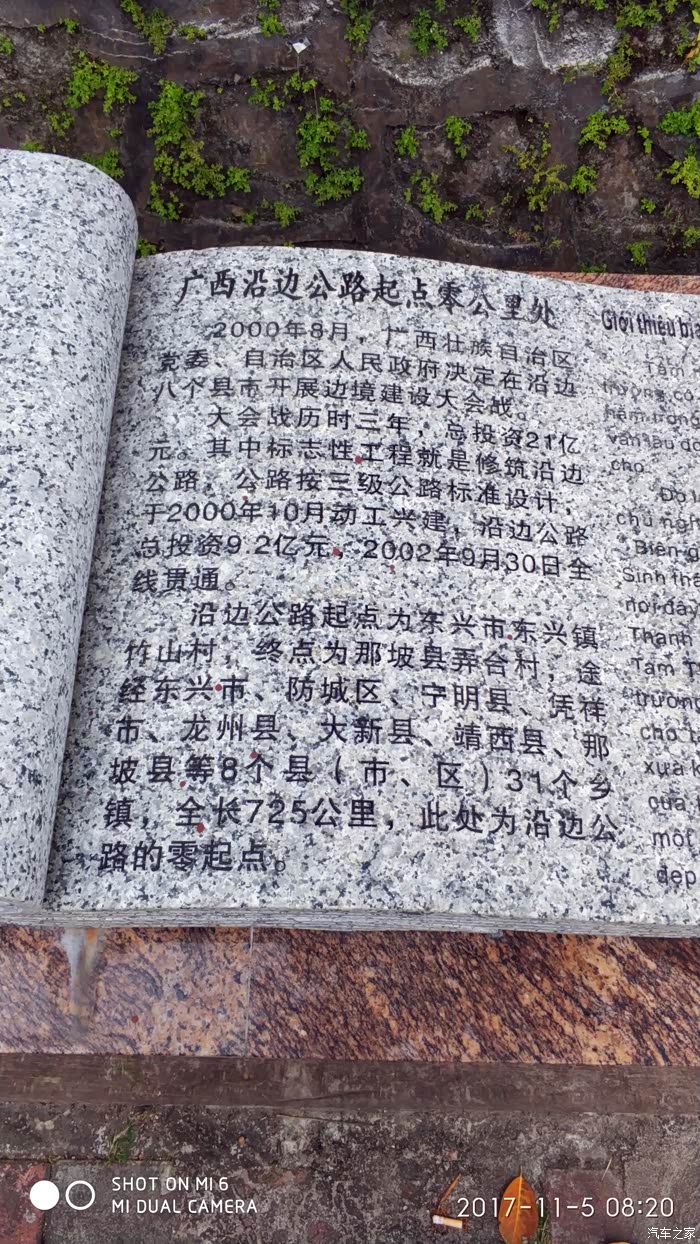 广西沿边公路起点零公里处
2000年8月，广西壮族自治区
党委、自治区人民政府决定在沿边
八个县市开展边境建设大会战。
大会战历时三年，总投资21亿
元。其中标志性工程就是修筑沿边
公路，公路按三级公路标准设计，
于2000年10月动工兴建，沿边公路
总投资9.2亿元，2002年9月30日全
线贯通。
沿边公路起点为东兴市东兴镇
竹山村，终点为那坡县弄合村，途
经东兴市、防城区、宁明县、凭祥
市、龙州县、大新县、靖西县、那
坡县等8个县（市、区）31个乡
镇，全长725公里，此处为沿边公
路的零起点。
Giới thiệu
Tấm
trọng
văn
cho
Do
chủ
Biên
Sinh
nơi
Thanh
Tam
trường
cho
xưa
của
một
đẹp
SHOT ON MI 6
MI DUAL CAMERA
2017-11-5 08:20
汽车之家